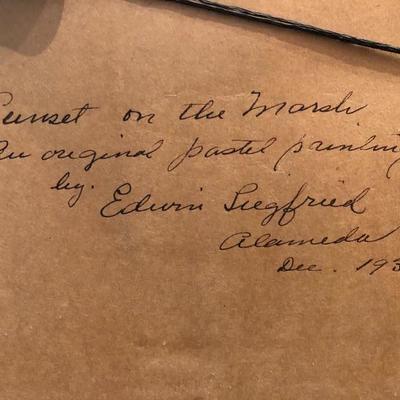 Sunset on the Marsh
An original pastel painting
by. Edwin Siegfried
Alameda
Dec. 193